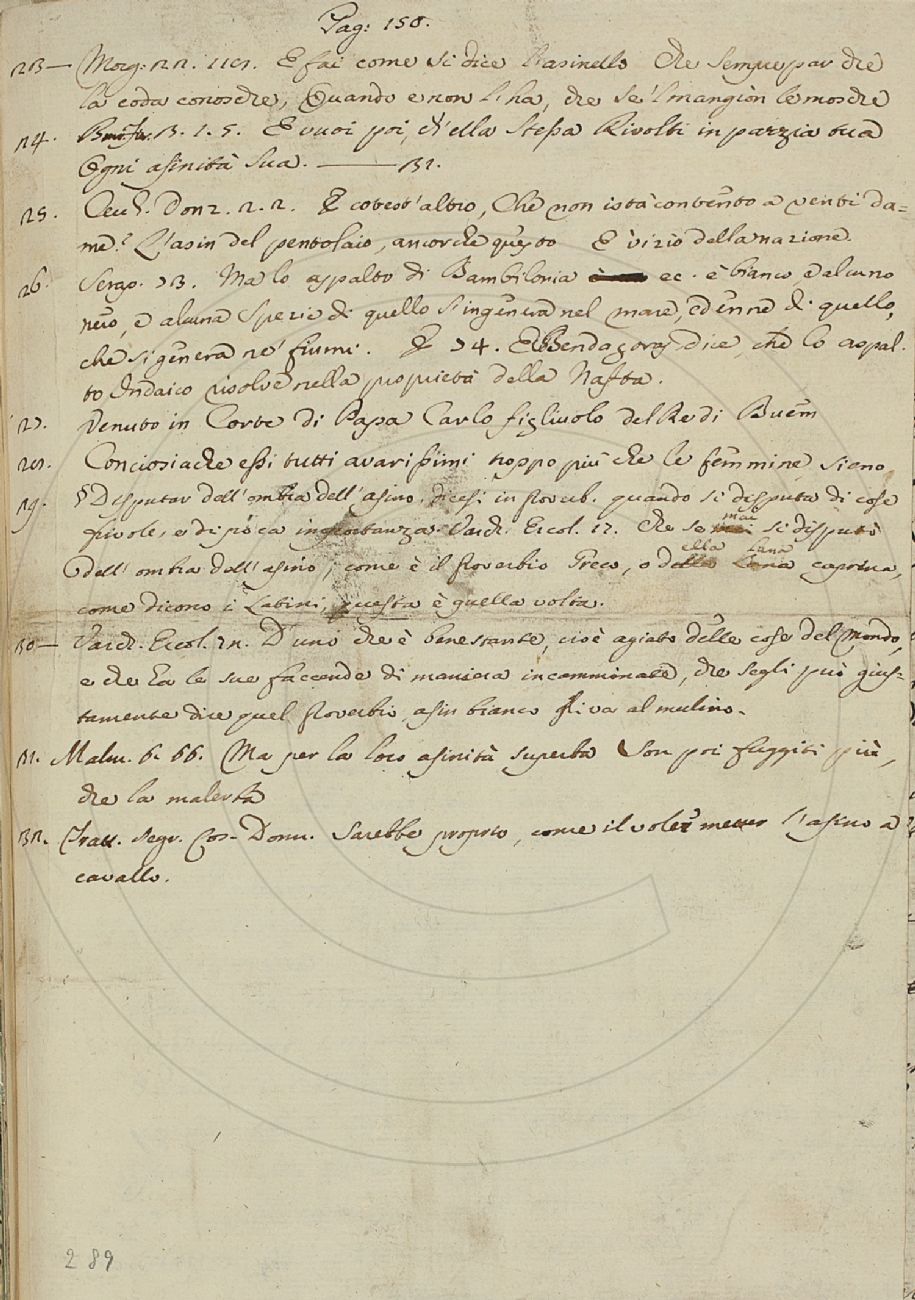 Pag: 158.
23 — Morg: 22. 118. E fai come si dice l'asinello Che sempre par che
la coda conosche, Quando e' non l'ha, che se 'l mangion le mosche
24. B. 1. 5. E vuoi poi, ch'ella stessa Rivolti in pazzia tua
Ogni asinità sua. ——— 31.
25. Cecch. Donz. 2. 2. E cotest'altro, Che non istà contento a venti da=
me? L'asin del pentolaio, ancorche questo E' vizio della nazione.
26. Serap. 73. Ma lo aspalto di Bambilonia ec. è bianco, e alcuno
nero, e alcuna spezie di quello s'ingenera nel mare, ed enne di quello,
che si genera ne' fiumi. E 74. E Bendagoras dice, che lo aspal-
to Indaico risolve nella propietà della Nafta.
27. Venuto in Corte di Papa Carlo figliuolo del Re di Buem
28. Conciosiache essi tutti avarissimi troppo più che le femmine sieno
29. § Disputar dell'ombra dell'asino, dicesi in proverb. quando si disputa di cose
frivole, e di poca importanza. Varch. Ercol. 17. Che se mai si disputò
dell'ombra dell'asino, come è il proverbio Greco, o della Lana caprina,
ella Lana
come dicono i Latini, questa è quella volta.
30 — Varch. Ercol. 72. D'uno che è benestante, cioè agiato delle cose del Mondo,
e che ha le sue faccende di maniera incamminate, che segli può gius-
tamente dire quel proverbio, asin bianco gli va al mulino.
31. Malm. 6. 66. Ma per la loro asinità superba Son poi fuggiti più,
che la malerba
32. Tratt. segr. cos. Donn. Sarebbe proprio, come il voler metter l'asino a
cavallo.
289